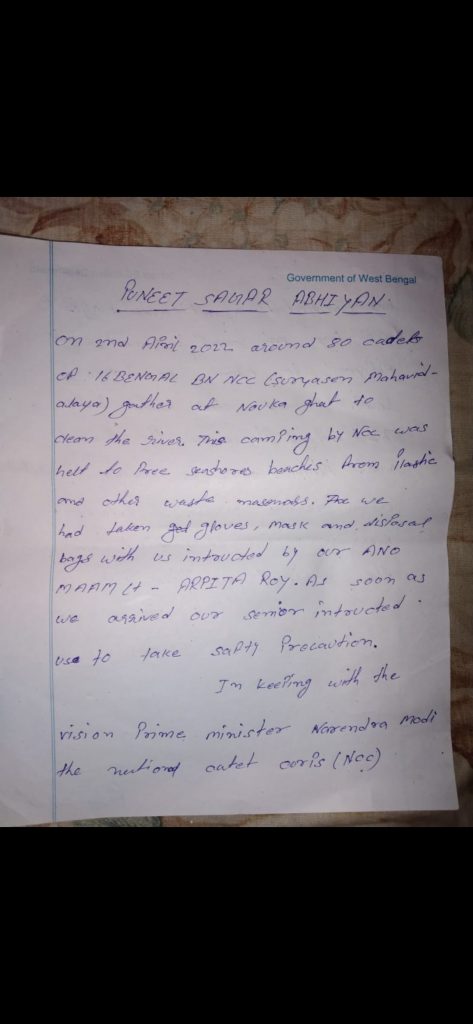 Government of West Bengal
PUNEET SAGAR ABHIYAN
On 2nd April 2022 around 80 cadets
of 16 BENGAL BN NCC (Suryasen Mahavid-
alaya) gather at Nouka ghat to
clean the river. This camping by Ncc was
helt to free seashores beaches from Plastic
and other waste. The we
had taken gloves, mask and disposal
bags with us intructed by our ANO
MAAM Lt - ARPITA ROY. As soon as
we arrived our senior intructed
use to take safty Precaution.
In keeping with the
vision Prime minister Narendra Modi
the nutional catet corps (Ncc)